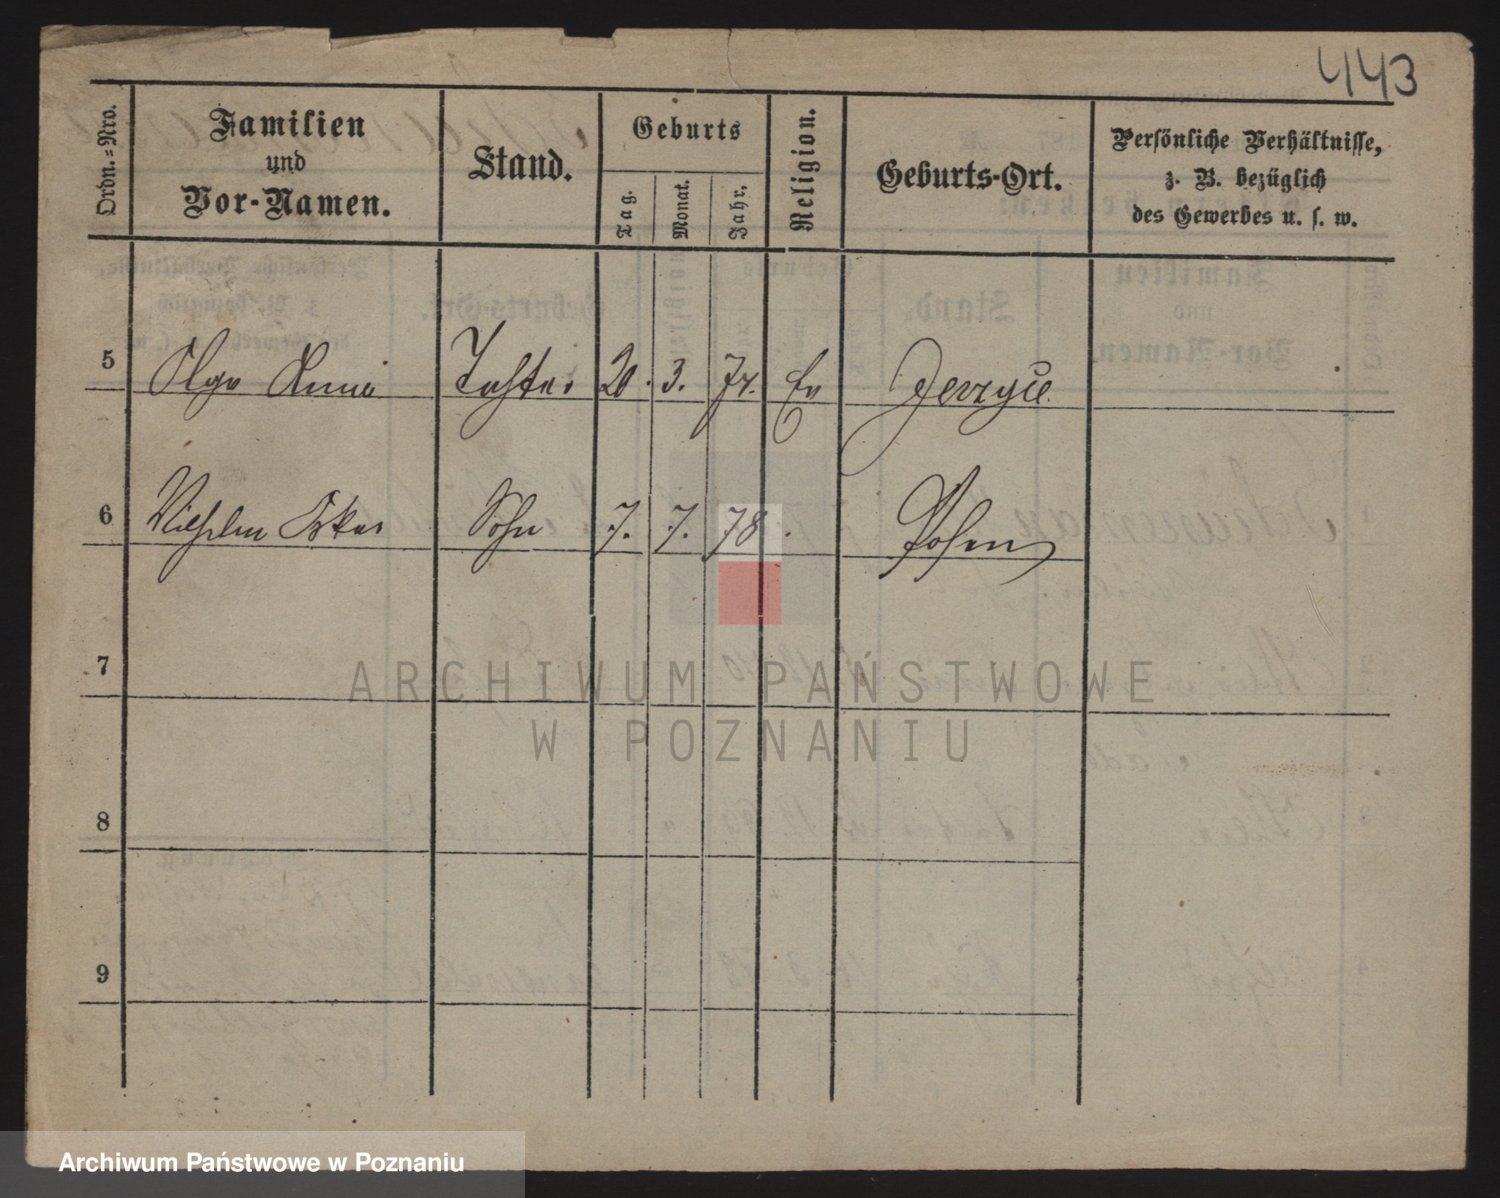 443
Ordn.-Nro.
Familien
und
Vor-Namen.
Stand.
Geburts
Tag.
Monat.
Jahr.
Religion.
Geburts-Ort.
Persönliche Verhältnisse,
z. B. bezüglich
des Gewerbes u. s. w.
5 Olga Anna Tochter 20. 3. 74. Ev Jerzyce
6 Wilhelm Oskar Sohn 7. 7. 78. Posen
7
8
9
ARCHIWUM PAŃSTWOWE
W POZNANIU
Archiwum Państwowe w Poznaniu